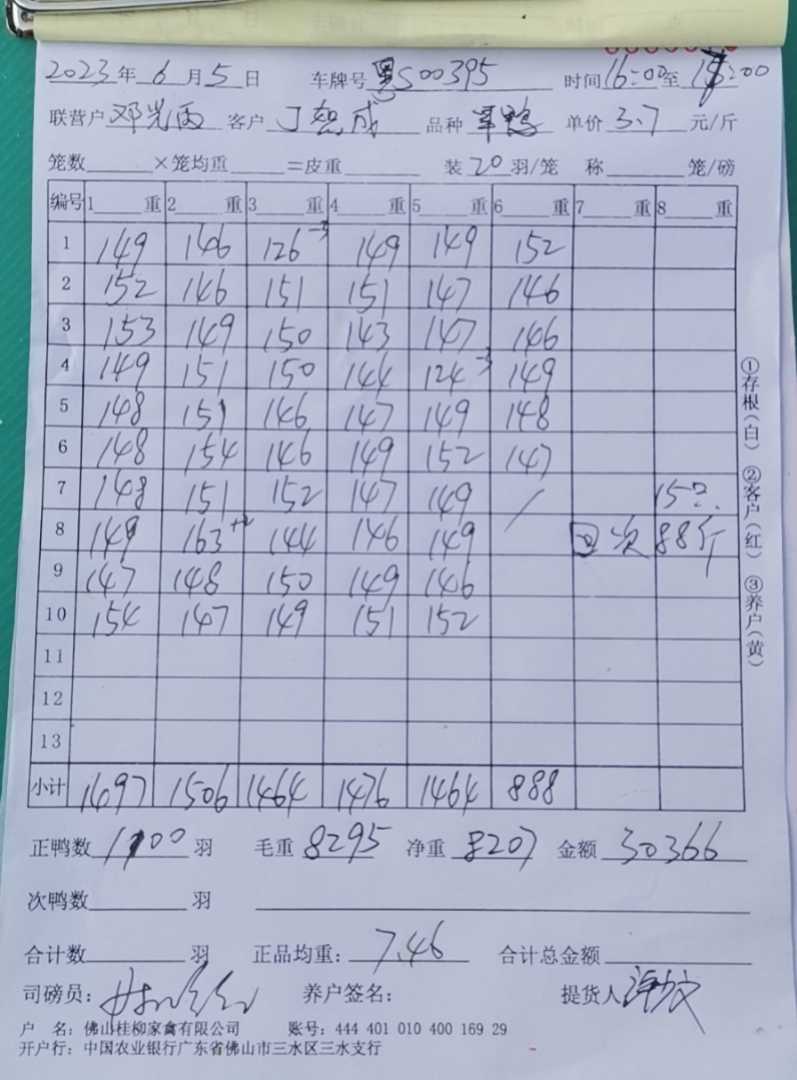 2023年6月5日 车牌号 粤S00395 时间16:00至18:00
联营户 邓光雨 客户 丁想成 品种 草鸭 单价 3.7 元/斤
笼数 ×笼均重 =皮重 装20羽/笼 称 笼/磅
编号 1 重 2 重 3 重 4 重 5 重 6 重 7 重 8 重
1 149 146 126 -3 149 149 152
2 152 146 151 151 147 146
3 153 149 150 143 147 146
4 149 151 150 144 124 -3 149
5 148 151 146 147 149 148
6 148 154 146 149 152 147
7 148 151 152 147 149 / 15只
8 149 163 +2 144 146 149 回次 88斤
9 147 148 150 149 146
10 154 147 149 151 152
11
12
13
小计 1497 1506 1464 1476 1464 888
正鸭数 1100 羽 毛重 8295 净重 8207 金额 30366
次鸭数 羽
合计数 羽 正品均重: 7.46 合计总金额
司磅员: 养户签名: 提货人
户 名: 佛山桂柳家禽有限公司 账号: 444 401 010 400 169 29
开户行: 中国农业银行广东省佛山市三水区三水支行
①存根(白) ②客户(红) ③养户(黄)